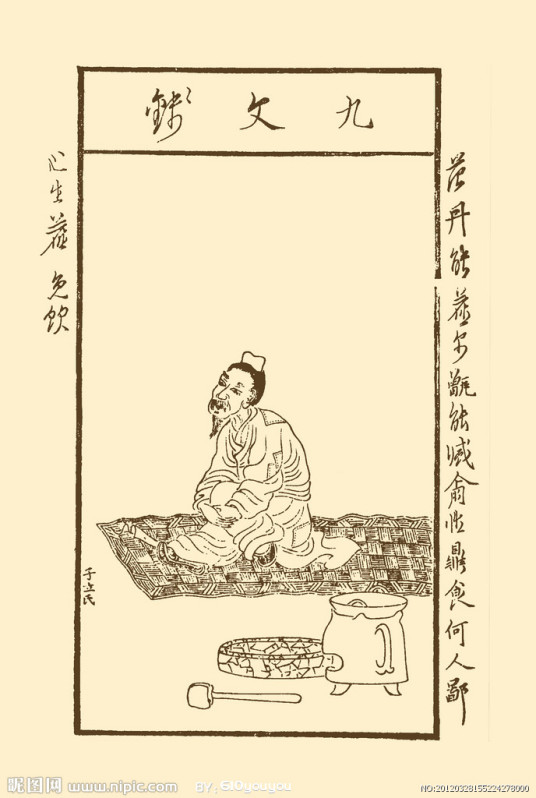 九文錢
范丹 能塵尔甑能 性鼎食何人鄙
心生塵 免飲
子立氏
昵图网 www.nipic.com
BY: 610youyou
NO:20120328155224278000